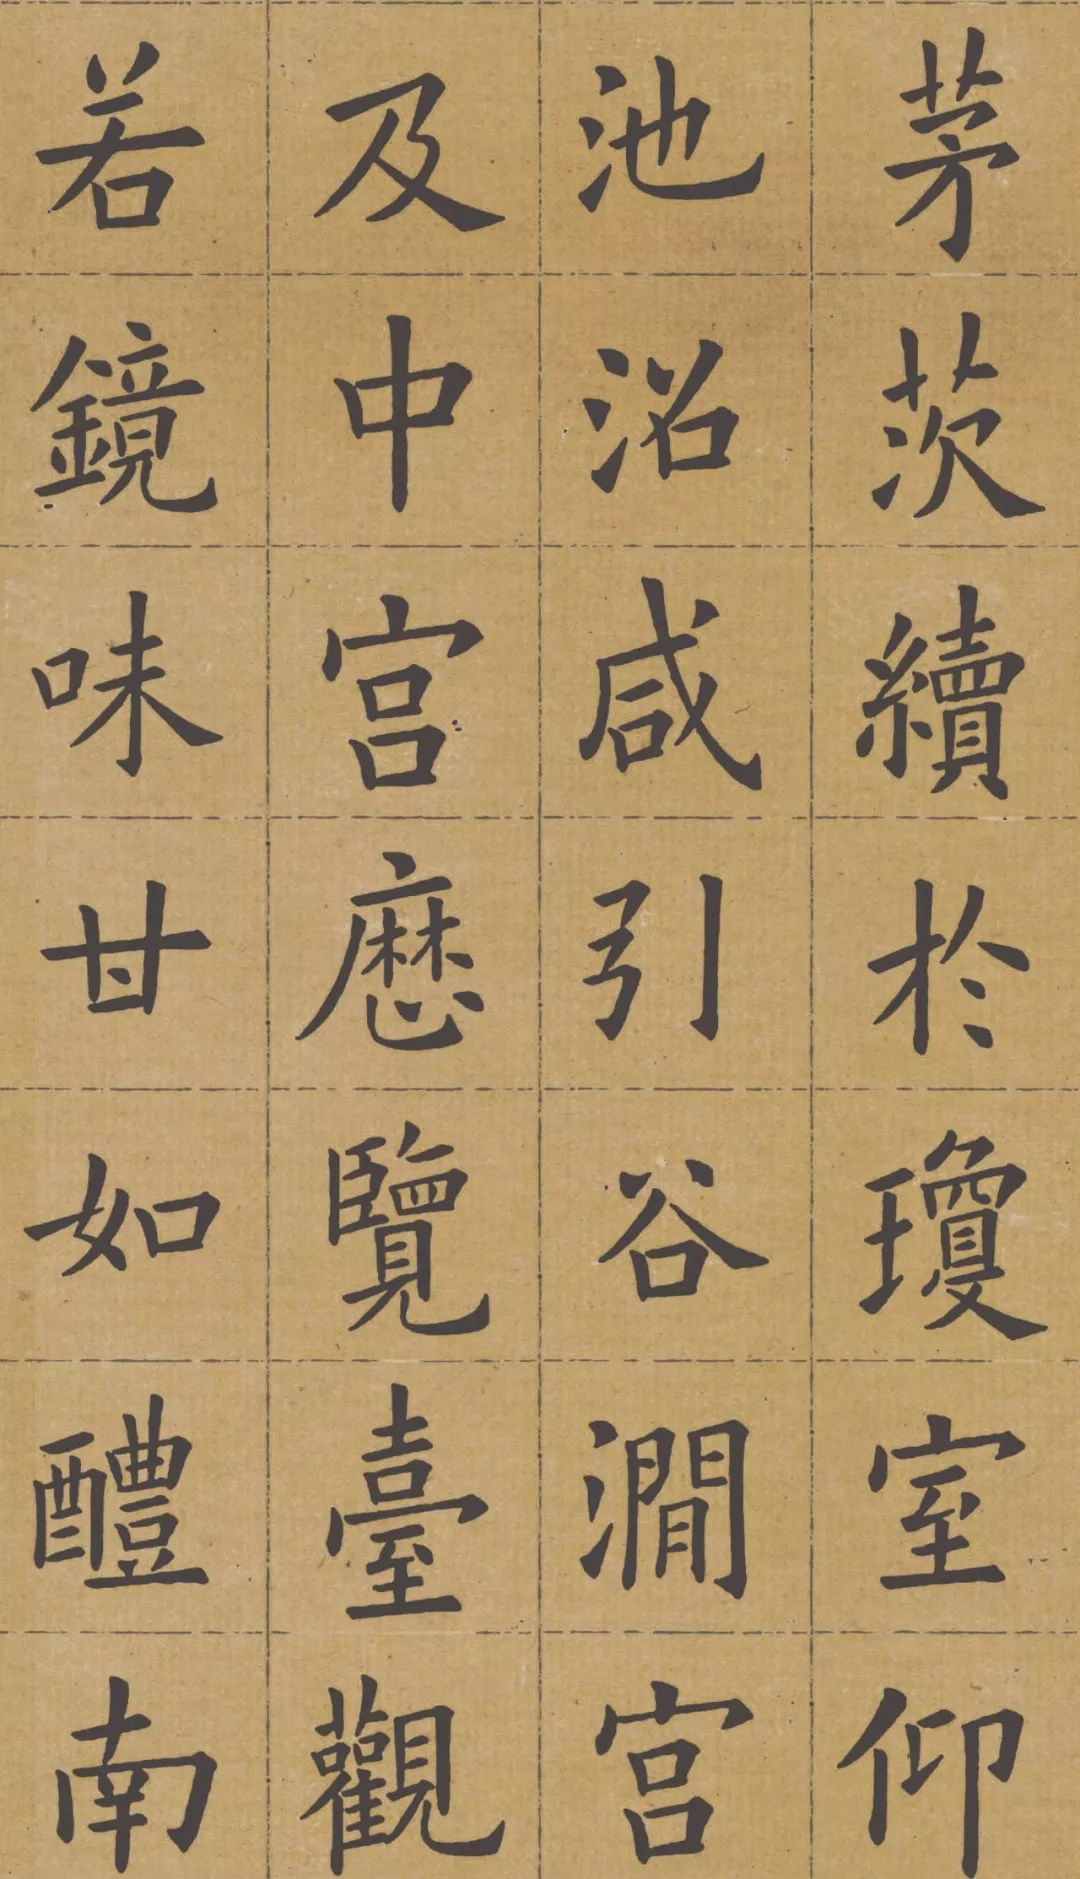 茅茨續於瓊室仰
池沼咸引谷澗宮
及中宮歷覽臺觀
若鏡味甘如醴南